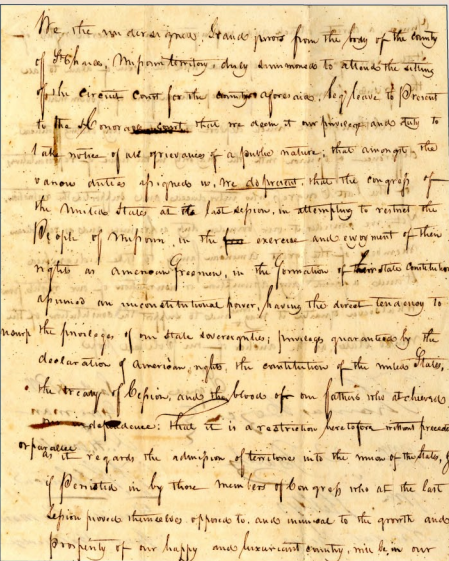 We, the undersigned Grand jurors from the body of the county
of St Charles, Missouri territory, duly summoned to attend the sitting
of the Circuit Court for the county aforesaid, beg leave to Present
to the Honorable Court, that we deem it our privilege and duty to
take notice of all grievances of a public nature; that amongst the
various duties assigned us, we do present, that the congress of
the United States at its last session, in attempting to restrict the
People of Missouri, in the exercise and enjoyment of their
rights as American Freemen, in the formation of their state Constitution
assumed an unconstitutional power, having the direct tendency to
usurp the privileges of our state sovereignties; privileges guaranteed by the
declaration of American rights, the constitution of the united States,
the treaty of Cession, and the blood of our fathers who atchieved
our independence: That it is a restriction heretofore without precedent
or parallel as it regards the admission of territories into the union of the States, &
if Persisted in by those members of Congress who at the last
session proved themselves opposed to, and inimical to the growth and
Prosperity of our happy and luxuriant country, will be, in our